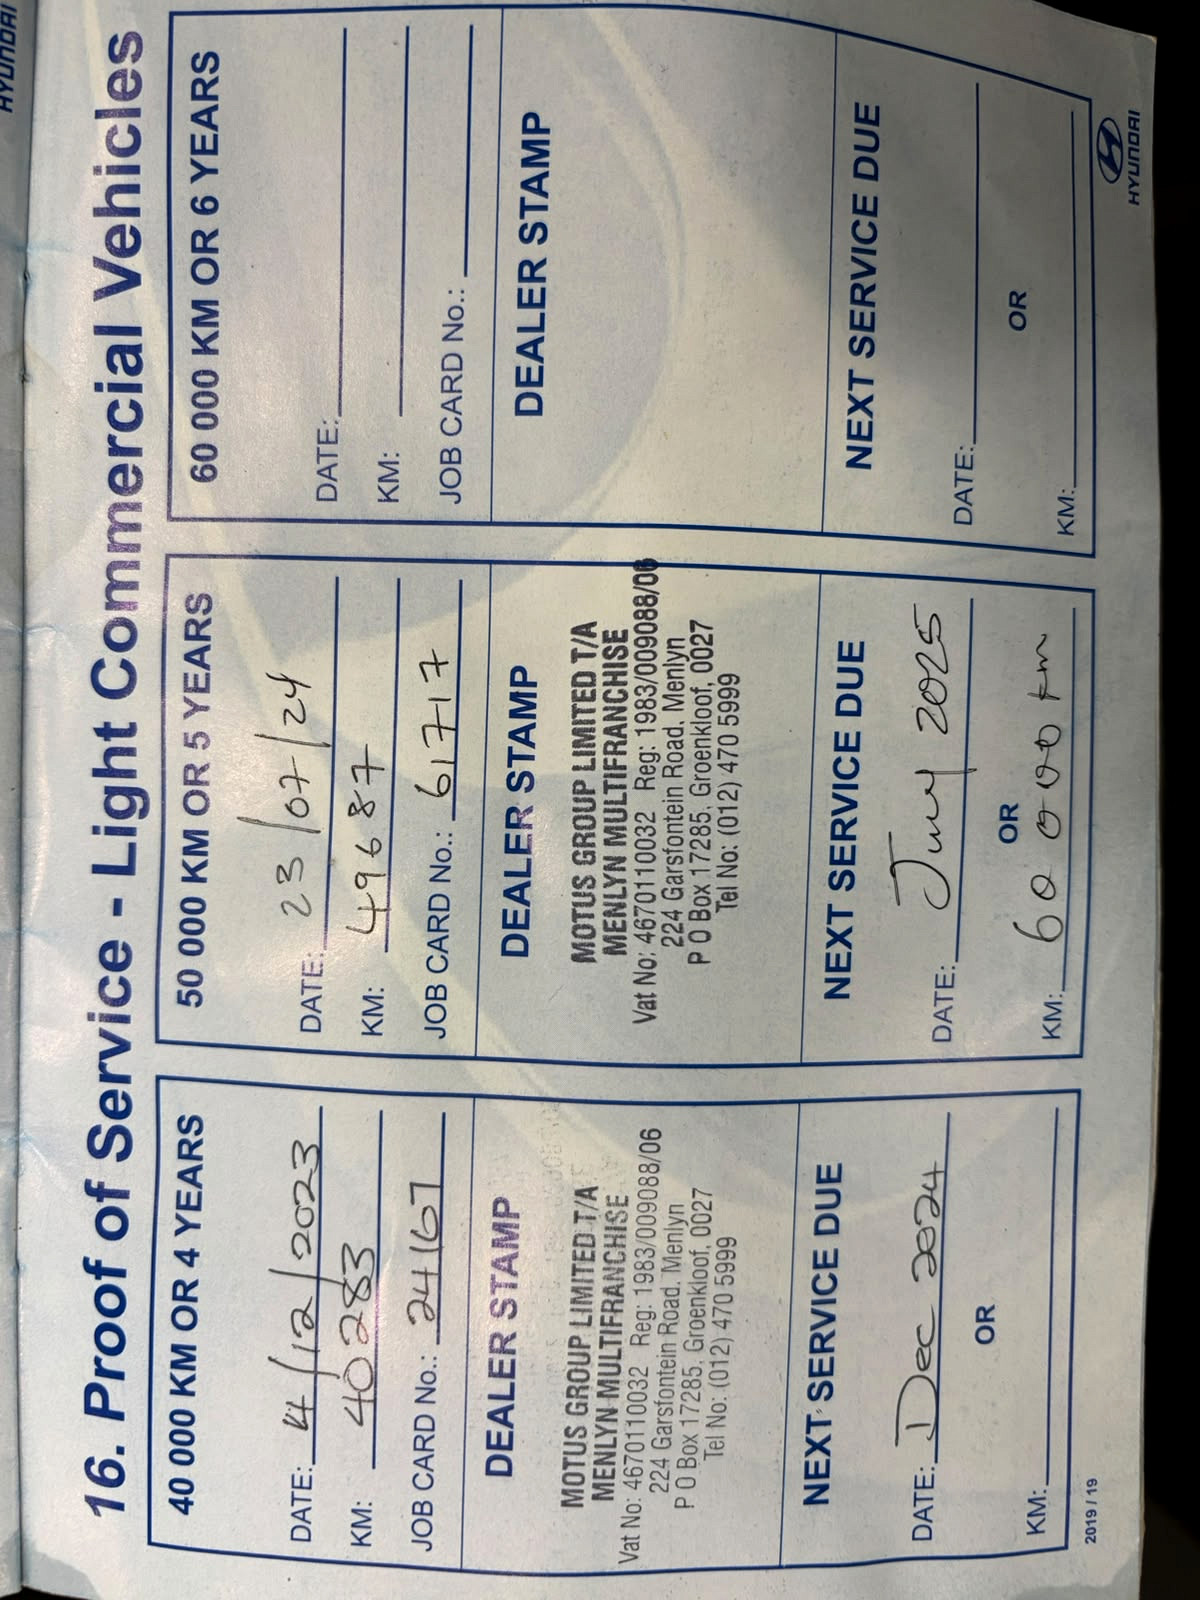 HYUNDAI
16. Proof of Service - Light Commercial Vehicles
40 000 KM OR 4 YEARS
DATE: 14/12/2023
KM: 40283
JOB CARD No.: 24167
DEALER STAMP
MOTUS GROUP LIMITED T/A
MENLYN MULTIFRANCHISE
Vat No: 4670110032 Reg: 1983/009088/06
224 Garsfontein Road, Menlyn
P O Box 17285, Groenkloof, 0027
Tel No: (012) 470 5999
NEXT SERVICE DUE
DATE: Dec 2024
OR
KM:
50 000 KM OR 5 YEARS
DATE: 23/07/24
KM: 49687
JOB CARD No.: 61717
DEALER STAMP
MOTUS GROUP LIMITED T/A
MENLYN MULTIFRANCHISE
Vat No: 4670110032 Reg: 1983/009088/06
224 Garsfontein Road, Menlyn
P O Box 17285, Groenkloof, 0027
Tel No: (012) 470 5999
NEXT SERVICE DUE
DATE: 2025
OR
KM: 60 000 km
60 000 KM OR 6 YEARS
DATE:
KM:
JOB CARD No.:
DEALER STAMP
NEXT SERVICE DUE
DATE:
OR
KM:
2019 / 19
HYUNDAI